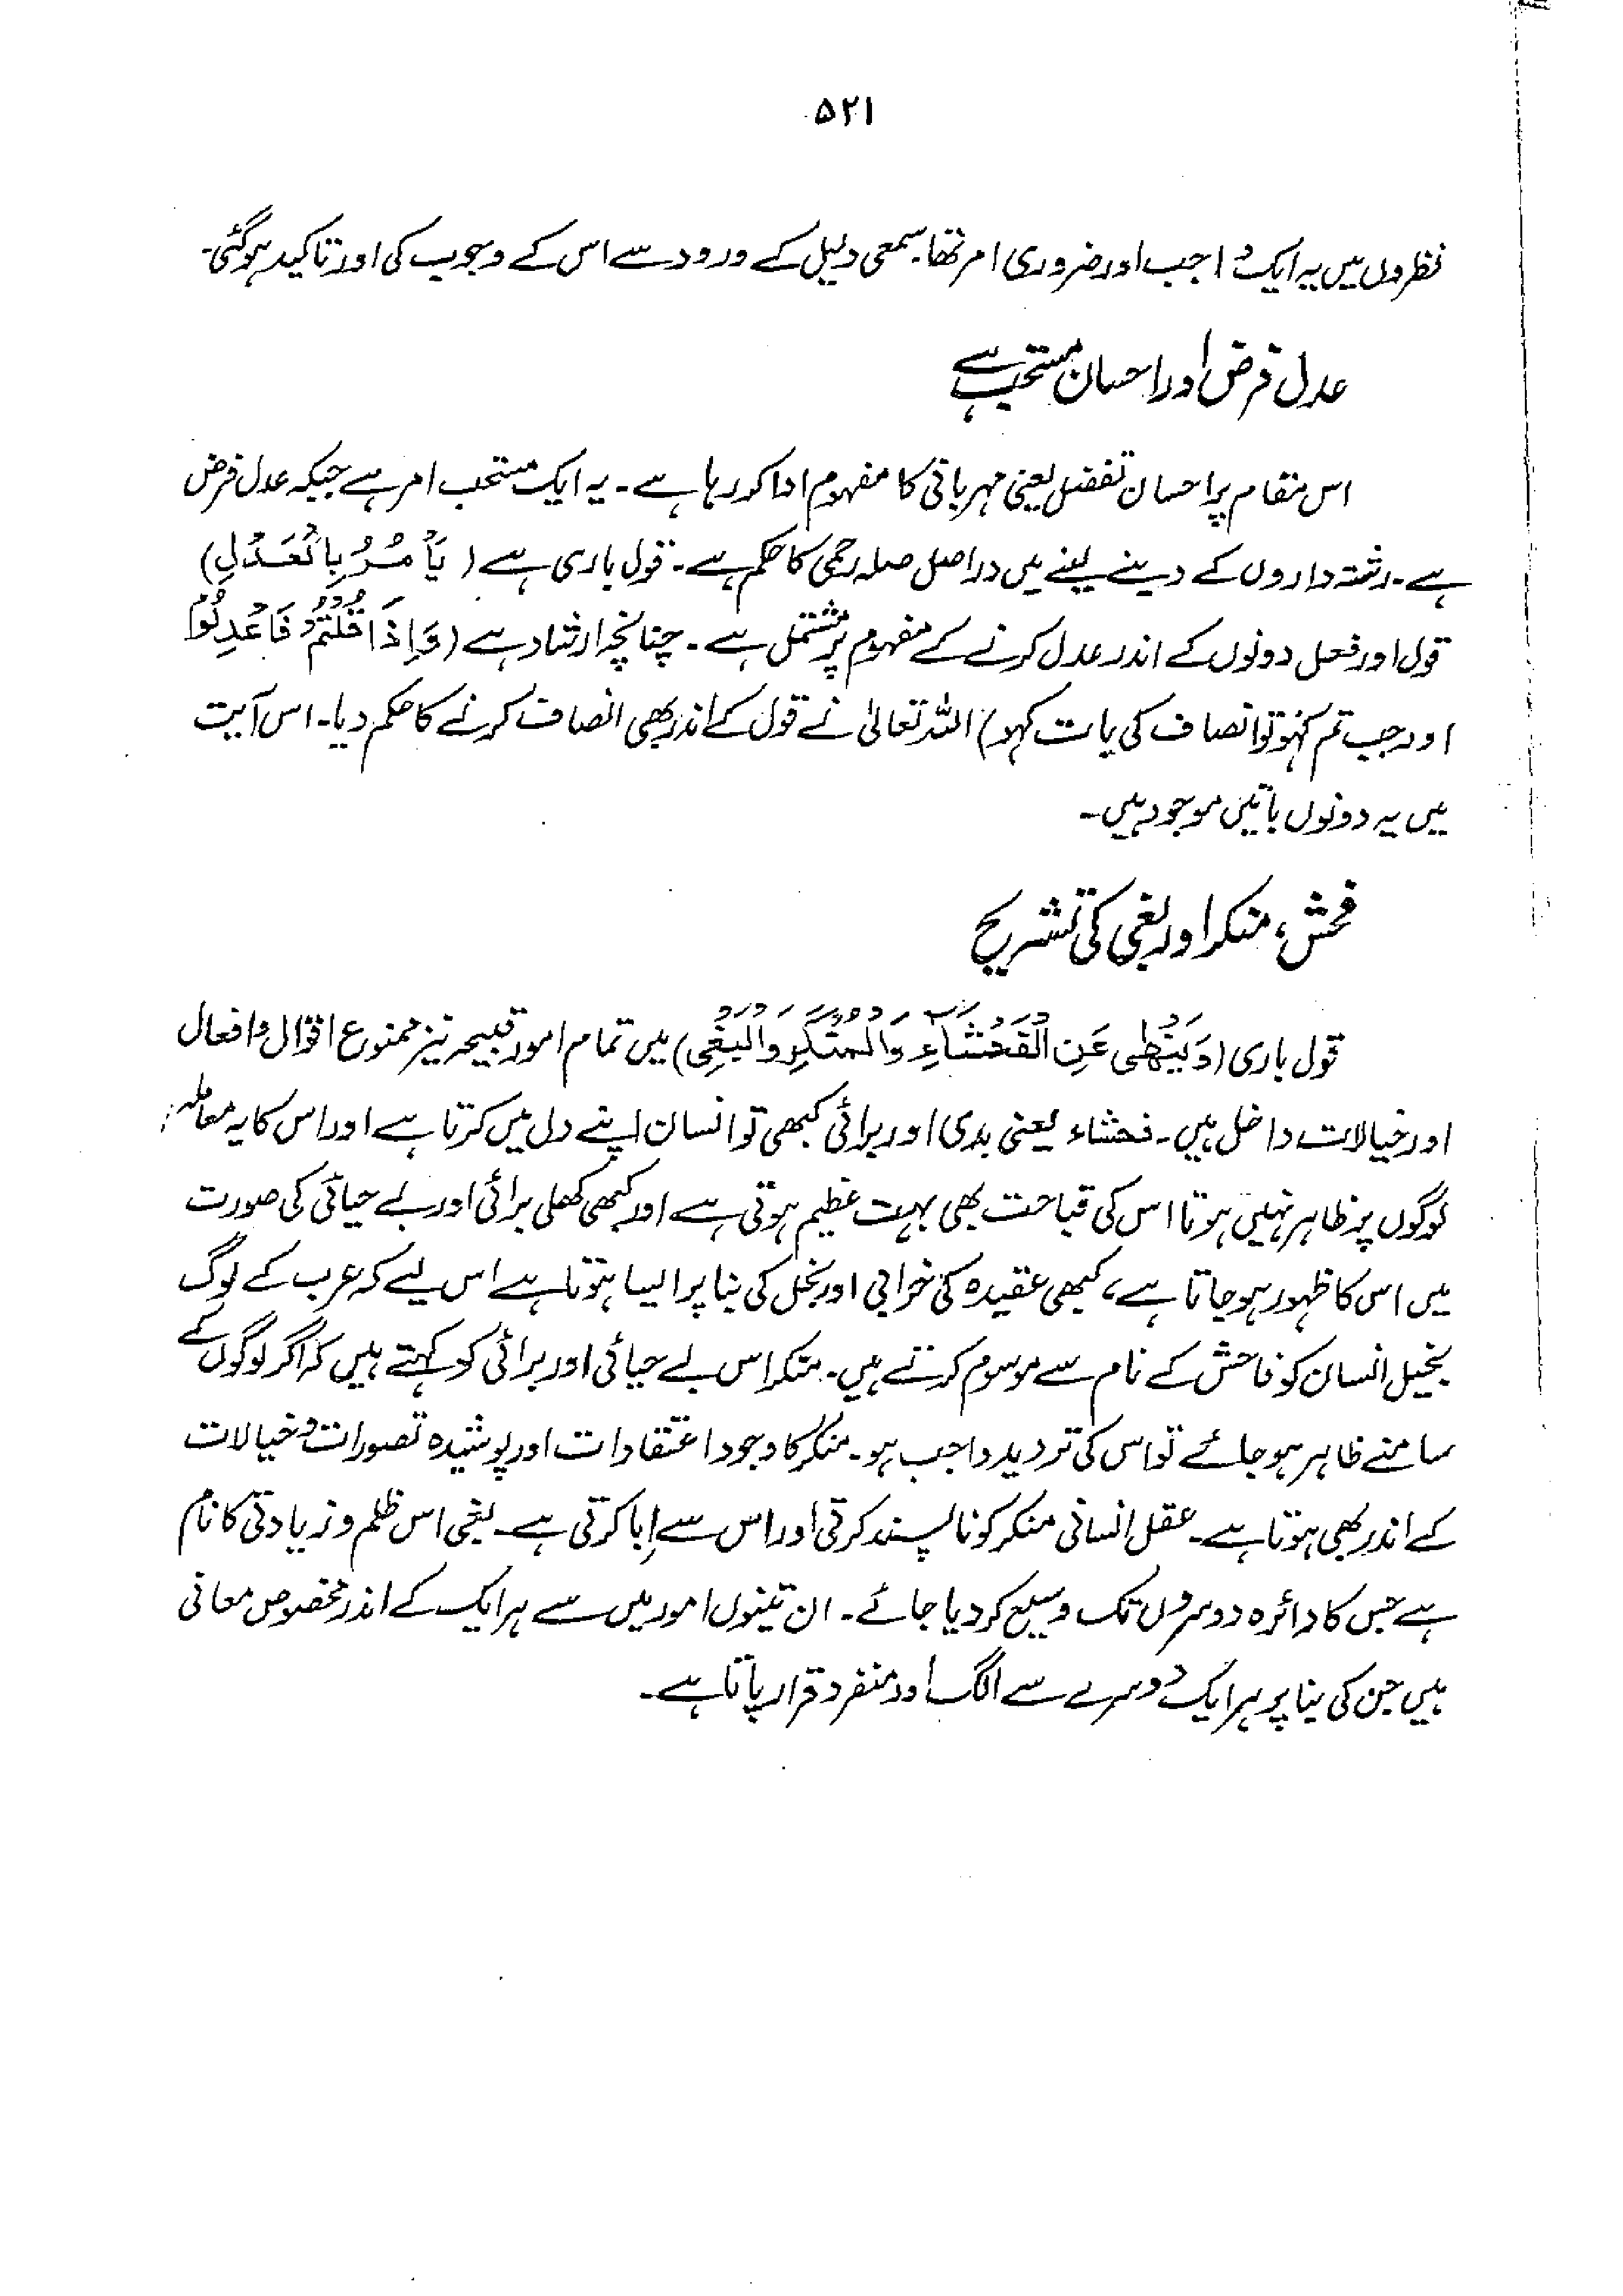 ۵۲۱
نظروں میں یہ ایک واجب اور ضروری امر تھا۔ سمعی دلیل کے ورود سے اس کے وجوب کی اور تاکید ہوگئی۔
عدل فرض اور احسان مستحب ہے
اس مقام پر احسان تفضل یعنی مہربانی کا مفہوم ادا کر رہا ہے۔ یہ ایک مستحب امر ہے جبکہ عدل فرض
ہے۔ رشتہ داروں کے دینے لینے میں دراصل صلہ رحمی کا حکم ہے۔ قول باری ہے (يَأْمُرُ بِالْعَدْلِ)
قول اور فعل دونوں کے اندر عدل کرنے کے مفہوم پر مشتمل ہے۔ چنانچہ ارشاد ہے (وَإِذَا قُلْتُمْ فَاعْدِلُوْا
اور جب تم کہو تو انصاف کی بات کہو) اللہ تعالیٰ نے قول کے اندر بھی انصاف کرنے کا حکم دیا۔ اس آیت
میں یہ دونوں باتیں موجود ہیں۔
فحش، منکر اور بغی کی تشریح
قول باری (وَيَنْهٰى عَنِ الْفَحْشَآءِ وَالْمُنْكَرِ وَالْبَغْيِ) میں تمام امور قبیحہ نیز ممنوع اقوال و افعال
اور خیالات داخل ہیں۔ فحشاء یعنی بدی اور برائی کبھی تو انسان اپنے دل میں کرتا ہے اور اس کا یہ معاملہ
لوگوں پر ظاہر نہیں ہوتا اس کی قباحت بھی بہت عظیم ہوتی ہے اور کبھی کھلی برائی اور بے حیائی کی صورت
میں اس کا ظہور ہو جاتا ہے، کبھی عقیدہ کی خرابی اور بخل کی بنا پر ایسا ہوتا ہے اس لیے کہ عرب کے لوگ
بخیل انسان کو فاحش کے نام سے موسوم کرتے ہیں۔ منکر اس بے حیائی اور برائی کو کہتے ہیں کہ اگر لوگوں کے
سامنے ظاہر ہو جائے تو اس کی تردید واجب ہو۔ منکر کا وجود اعتقادات اور پوشیدہ تصورات و خیالات
کے اندر بھی ہوتا ہے۔ عقل انسانی منکر کو ناپسند کرتی اور اس سے اِبا کرتی ہے۔ بغی اس ظلم و زیادتی کا نام
ہے جس کا دائرہ دوسروں تک وسیع کر دیا جائے۔ ان تینوں امور میں سے ہر ایک کے اندر مخصوص معانی
ہیں جن کی بنا پر ہر ایک دوسرے سے الگ اور منفرد قرار پاتا ہے۔